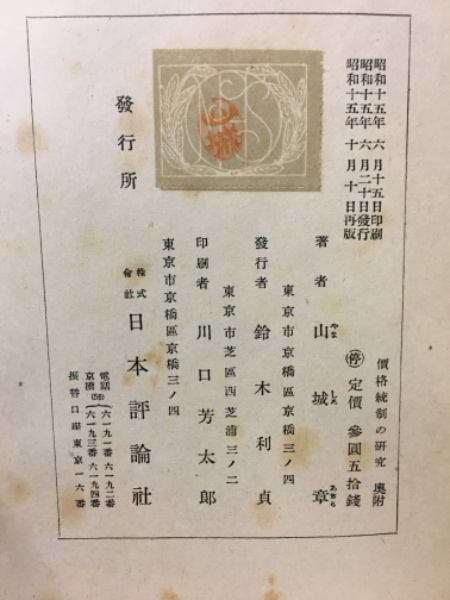 昭和十五年六月十五日印刷
昭和十五年六月二十日發行
昭和十五年十月十日再版
價格統制の研究 奥附
㊡定價 參圓五拾錢
著者 山城章
やましろ あきら
東京市京橋區京橋三ノ四
發行者 鈴木利貞
東京市芝區西芝浦三ノ二
印刷者 川口芳太郎
東京市京橋區京橋三ノ四
發行所 株式會社 日本評論社
電話京橋(56) 六一九一番 六一九二番
六一九三番 六一九四番
振替口座東京一六番